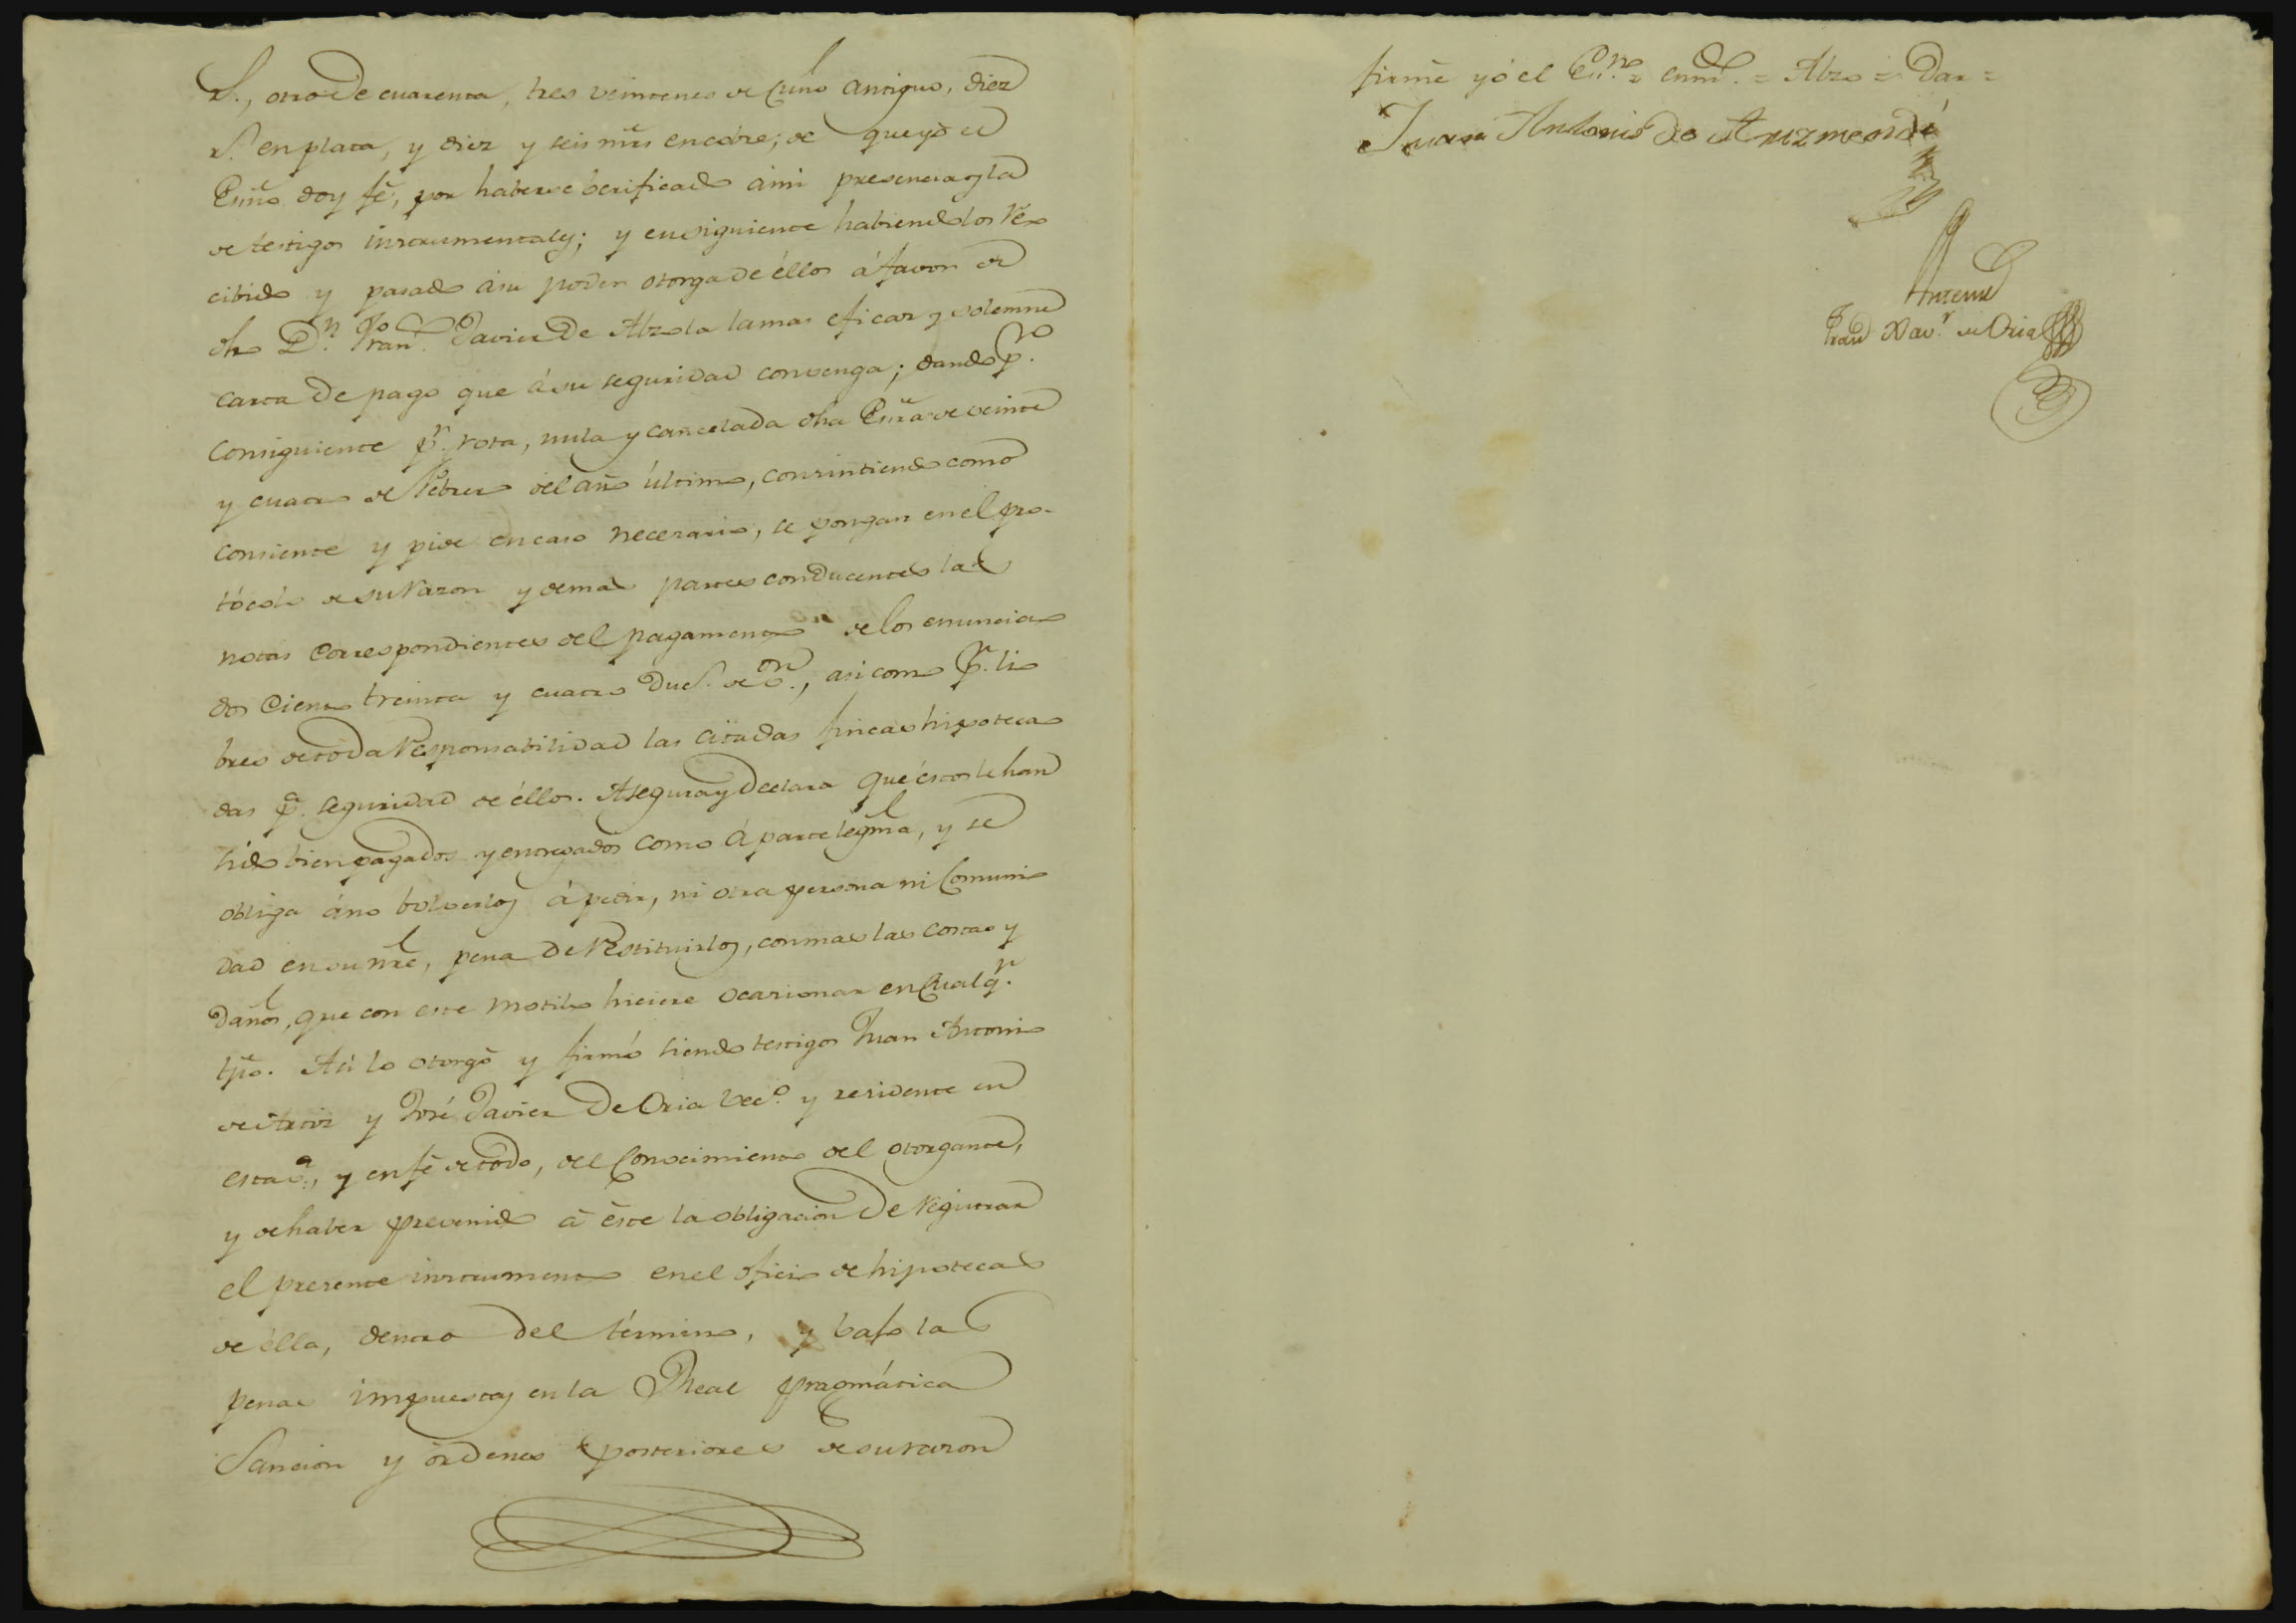 r.s, otro de cuarenta, tres veintenes de Cuño antiguo, diez
r.s en plata, y diez y seis mrs en cobre; de que yo el
Essño doy fé, por haberse berificado á mi presencia, y la
de testigos instrumentales; y cunsiguiente habiendolos re-
cibido y pasado á su poder otorga de éllos á favor de
dho D.n Fran.co Javier De Alzola la mas eficaz y solemne
carta de pago que á su seguridad convenga; dando p.r
consiguiente p.r rota, nula y cancelada dha Essra de veinte
y cuatro de Febrero del año último, consintiendo como
consiente y pide en caso necesario, se pongan en el pro-
tócolo de su razon y demas partes conducentes las
notas correspondientes del pagamento de los enuncia-
dos Ciento treinta y cuatro Duc.s de v.on, asi como p.r li-
bres de toda responsabilidad las citadas fincas hipoteca-
das p.a seguridad de éllos. Asegura y declara que éstos le han
sido bien pagados y entregados como á parte legma, y se
obliga á no bolverlos á pedir, ni otra persona ni Comuni-
dad en su nre, pena de restituirlos, con mas las costas y
daños, que con este motibo hiciere ocasionar en Cualq.r
tpo. Asi lo otorgó y firmó siendo testigos Juan Antonio
de y José Javier De Oria Vec.o y residente en
esta v.a, y en fé de todo, del Conocimiento del otorgante,
y de haber prevenido á éste la obligacion de registrar
el presente instrumento en el oficio de hipotecas
de élla, dentro del término, y bajo las
penas impuestas en la Real pragmática
Sancion y órdenes posteriores de su razon
firmé yó el Es.no = enmd.o = Alzo = Dar =
Juan Antonio de Aruzmendi
Antemi
Fran.co Xav.r de Oria